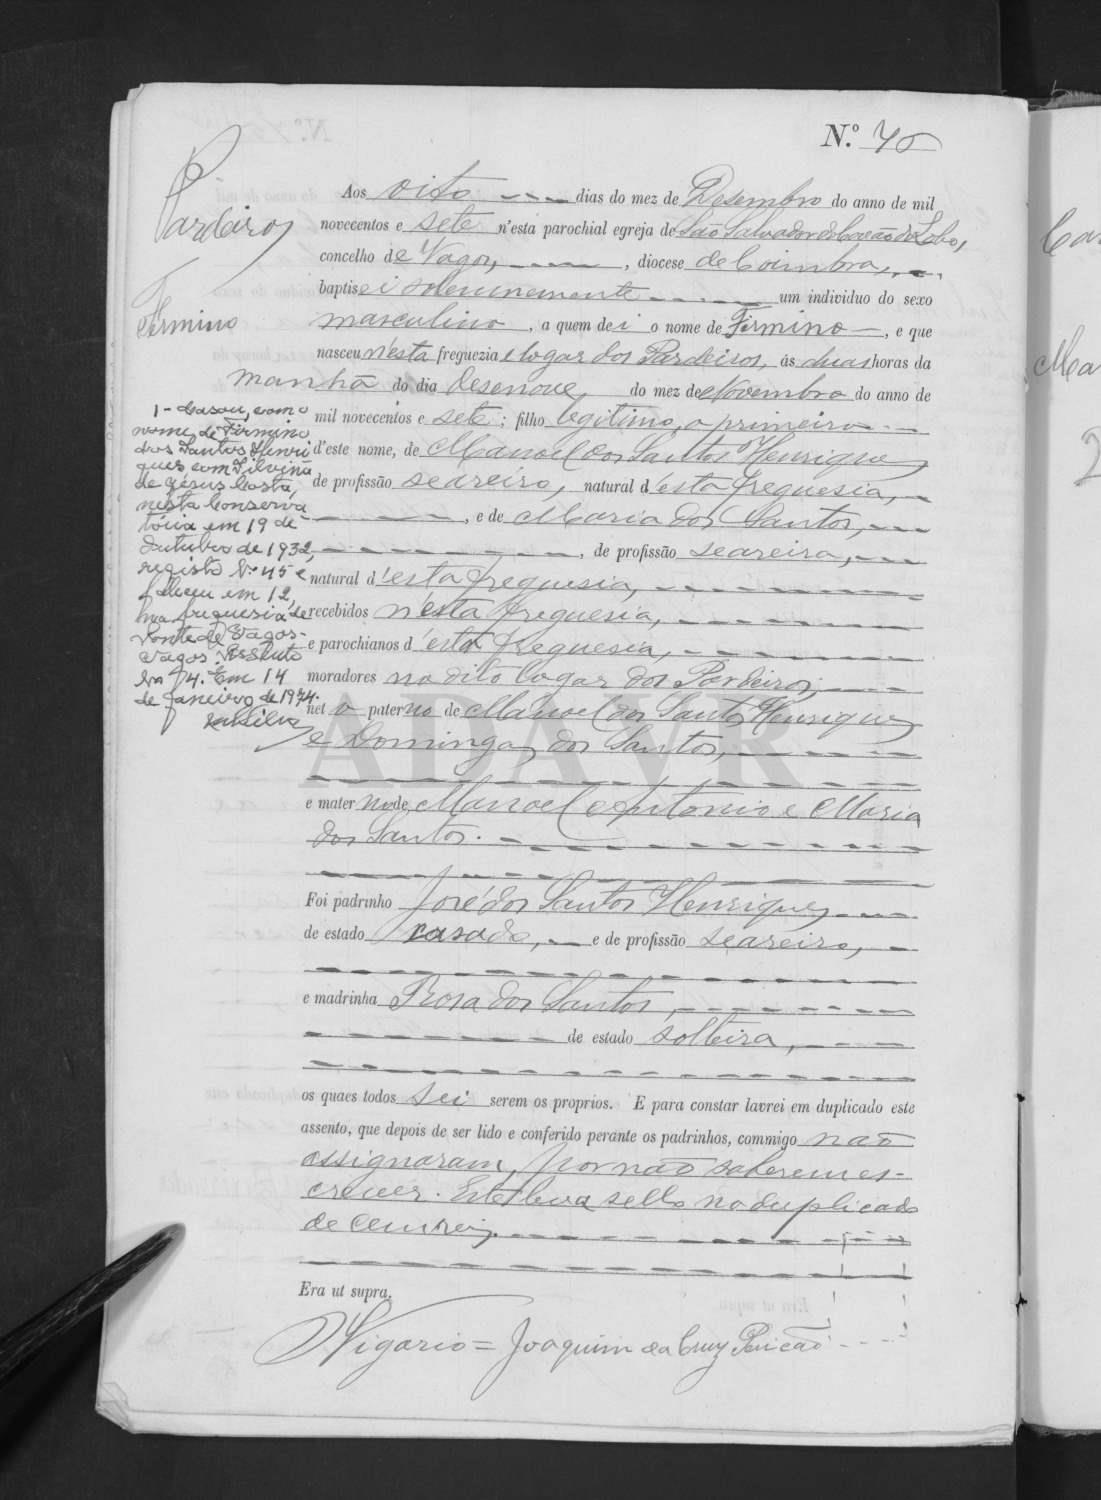 N.º 70
Pardeiros
Firmino
Aos oito dias do mez de Desembro do anno de mil
novecentos e sete n'esta parochial egreja de São Salvador do Covão do Lobo,
concelho de Vagos, , diocese de Coimbra,
baptisei solemnemente um individuo do sexo
masculino , a quem dei o nome de Firmino , e que
nasceu n'esta freguezia e logar dos Pardeiros, ás duas horas da
manhã do dia desenove, do mez de Novembro do anno de
mil novecentos e sete ; filho legitimo, o primeiro
d'este nome, de Manoel dos Santos Henriques
de profissão seareiro, natural d'esta freguesia,
, e de Maria dos Santos,
, de profissão seareira,
natural d'esta freguesia,
recebidos n'esta freguesia,
e parochianos d'esta freguesia,
moradores no dito logar dos Pardeiros,
neto paterno de Manoel dos Santos Henriques
e Domingas dos Santos,
e materno de Manoel Antonio e Maria
dos Santos.
Foi padrinho José dos Santos Henriques
de estado casado, e de profissão seareiro,
e madrinha Rosa dos Santos,
de estado solteira,
os quaes todos sei serem os proprios. E para constar lavrei em duplicado este
assento, que depois de ser lido e conferido perante os padrinhos, commigo não
assignaram, por não saberem es-
crever. Este leva sello no duplicado
de cem reis.
Era ut supra.
O Vigario = Joaquim da Cruz
1 - Casou, com o
nome de Firmino
dos Santos Henri
ques com Silvina
de Jesus Costa,
nesta Conserva
tória em 19 de
Outubro de 1932,
registo N.º 45 e
faleceu em 12,
na freguesia de
Ponte de Vagos -
Vagos. Assento
No 74. Em 14
de Janeiro de 1974.
ADAVR